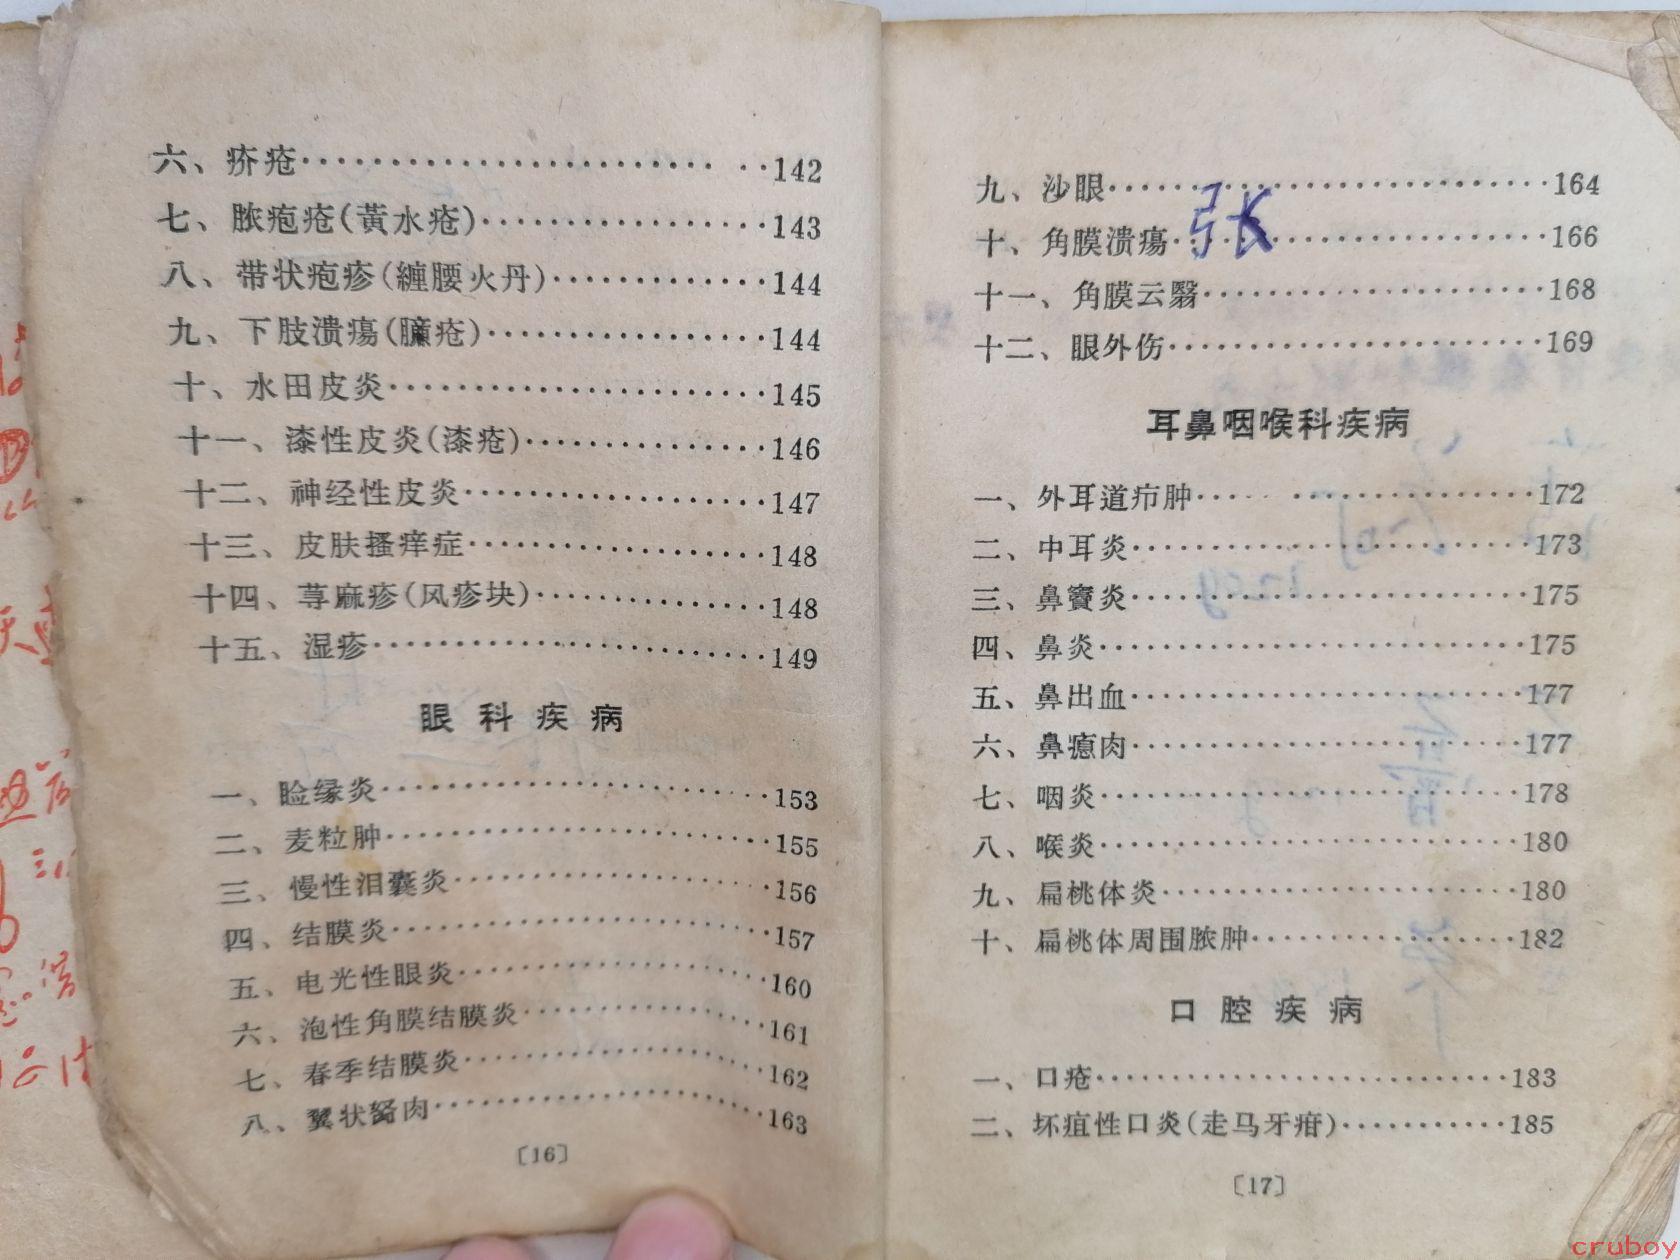 六、疥疮························142
七、脓疱疮(黃水疮)················143
八、带状疱疹(纏腰火丹)············144
九、下肢潰瘍(臁疮)················144
十、水田皮炎······················145
十一、漆性皮炎(漆疮)··············146
十二、神经性皮炎··················147
十三、皮肤搔痒症··················148
十四、荨麻疹(风疹块)··············148
十五、湿疹························149
眼科疾病
一、睑缘炎························153
二、麦粒肿························155
三、慢性泪囊炎····················156
四、结膜炎························157
五、电光性眼炎····················160
六、泡性角膜结膜炎················161
七、春季结膜炎····················162
八、翼状胬肉······················163
〔16〕
九、沙眼··························164
十、角膜潰瘍······················166
张
十一、角膜云翳····················168
十二、眼外伤······················169
耳鼻咽喉科疾病
一、外耳道疖肿····················172
二、中耳炎························173
三、鼻竇炎························175
四、鼻炎··························175
五、鼻出血························177
六、鼻瘜肉························177
七、咽炎··························178
八、喉炎··························180
九、扁桃体炎······················180
十、扁桃体周围脓肿················182
口腔疾病
一、口疮··························183
二、坏疽性口炎(走马牙疳)···········185
〔17〕
cruboy